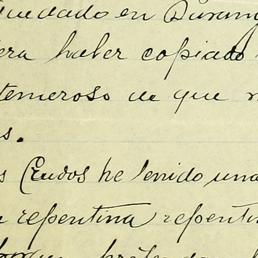 quedado en Durang
era haber copiado
temeroso de que n
s.
s Crudos he tenido una
repentina repenti